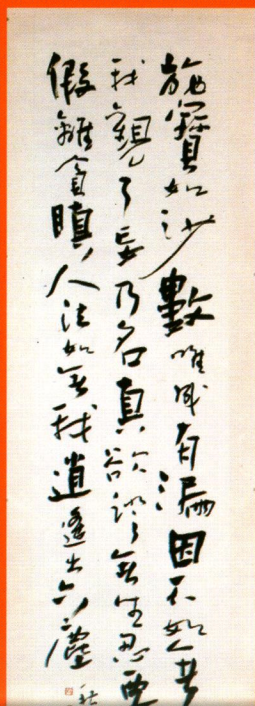 施寶如沙數唯成有漏因不如無
我觀了妄乃名真欲證無生忍要
假離貪瞋人法知無我逍遙出六塵